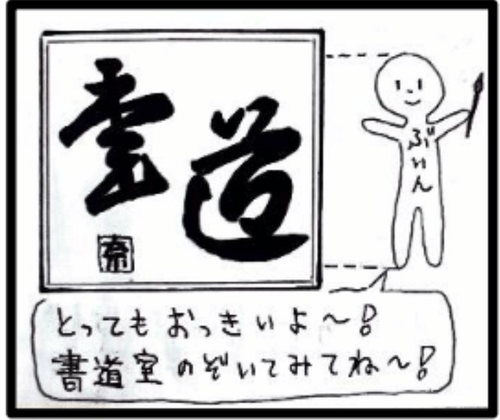 道
奈
ぶいん
とってもおっきいよ〜!
書道室のぞいてみてね〜!